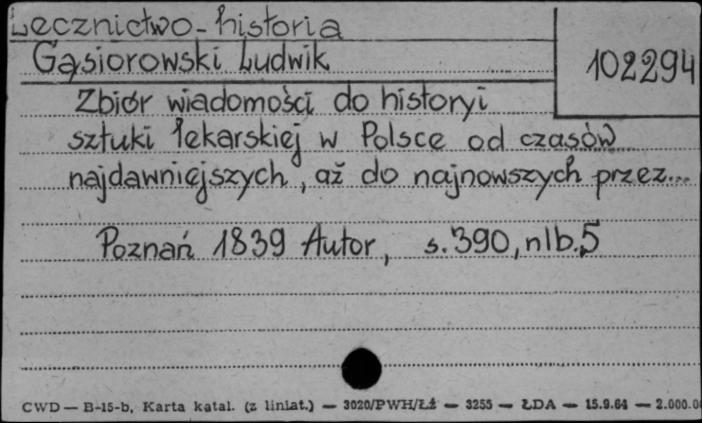 Lecznictwo - historia
Gąsiorowski Ludwik
102294
Zbiór wiadomości do historyi
sztuki lekarskiej w Polsce od czasów
najdawniejszych, aż do najnowszych przez...
Poznań 1839 Autor, s. 390, nlb. 5
CWD — B-15-b, Karta katal. (z liniat.) — 3020/PWH/Łż — 3255 — ŁDA — 15.9.64 — 2.000.0